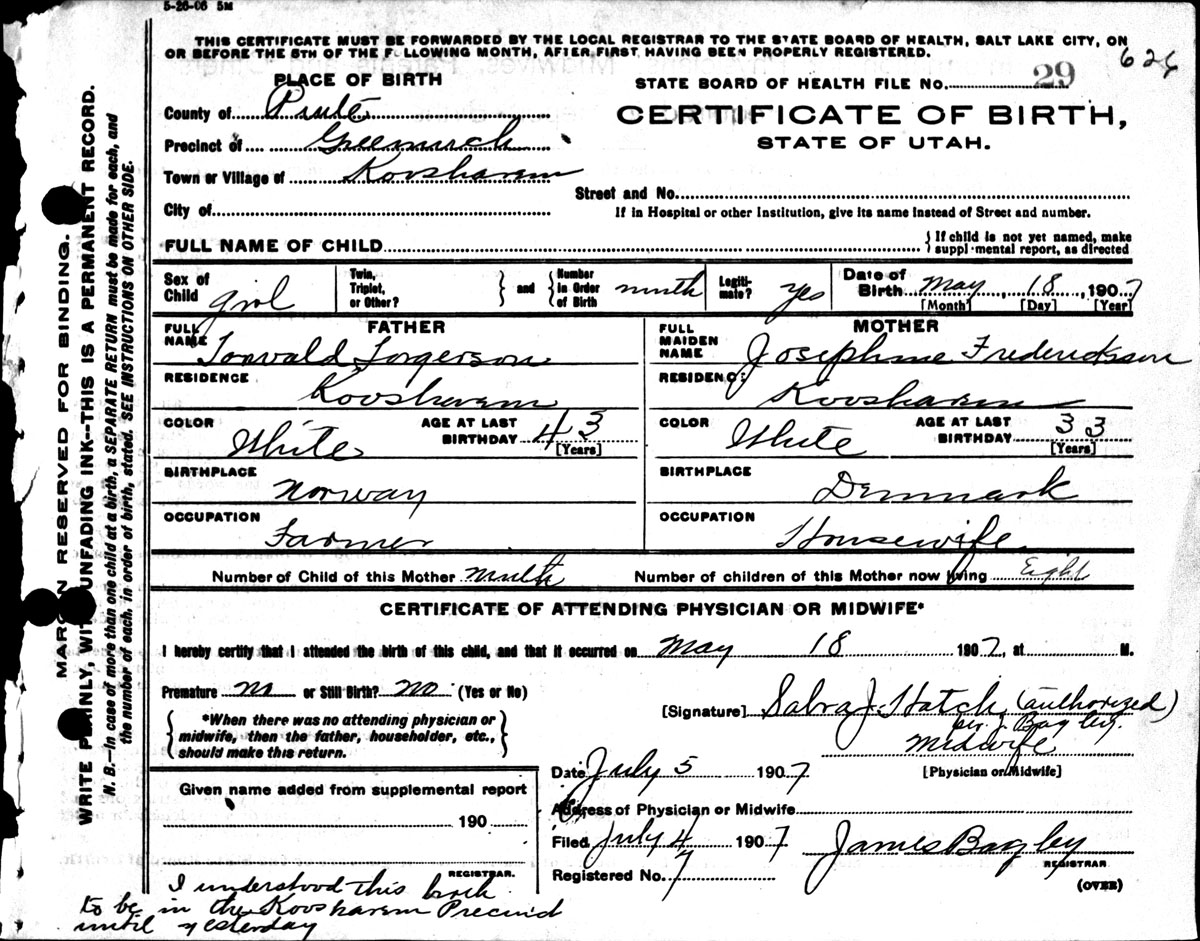 5-26-06 5M
THIS CERTIFICATE MUST BE FORWARDED BY THE LOCAL REGISTRAR TO THE STATE BOARD OF HEALTH, SALT LAKE CITY, ON
OR BEFORE THE 5TH OF THE FOLLOWING MONTH, AFTER FIRST HAVING BEEN PROPERLY REGISTERED.
626
PLACE OF BIRTH
STATE BOARD OF HEALTH FILE No. 29
County of Piute
CERTIFICATE OF BIRTH,
STATE OF UTAH.
Precinct of Greenwich
Town or Village of Koosharem
Street and No.
City of
If in Hospital or other Institution, give its name instead of Street and number.
FULL NAME OF CHILD
{ If child is not yet named, make
suppl·mental report, as directed
Sex of Child girl
Twin, Triplet, or Other? } and { Number in Order of Birth ninth
Legiti-mate? yes
Date of Birth May, 18, 1907
[Month] [Day] [Year]
FATHER
FULL NAME Torwald Torgerson
RESIDENCE Koosharem
COLOR White AGE AT LAST BIRTHDAY 43 [Years]
BIRTHPLACE Norway
OCCUPATION Farmer
MOTHER
FULL MAIDEN NAME Josephine Fredericksson
RESIDENCE Koosharem
COLOR White AGE AT LAST BIRTHDAY 33 [Years]
BIRTHPLACE Denmark
OCCUPATION Housewife
Number of Child of this Mother ninth Number of children of this Mother now living Eight
CERTIFICATE OF ATTENDING PHYSICIAN OR MIDWIFE*
I hereby certify that I attended the birth of this child, and that it occurred on May 18 1907, at M.
Premature no or Still Birth? no (Yes or No)
{ *When there was no attending physician or
midwife, then the father, householder, etc.,
should make this return. }
[Signature] Sabra J. Hatch (authorized)
per J. Bagley.
Midwife
[Physician or Midwife]
Date July 5 1907
Address of Physician or Midwife
Filed July 4 1907 James Bagley
REGISTRAR
Registered No. 7
(OVER)
Given name added from supplemental report
190
REGISTRAR.
I understood this birth
to be in the Koosharem Precind
until yesterday
MARGIN RESERVED FOR BINDING.
WRITE PLAINLY, WITH UNFADING INK--THIS IS A PERMANENT RECORD.
N. B.—In case of more than one child at a birth, a SEPARATE RETURN must be made for each, and
the number of each, in order of birth, stated. SEE INSTRUCTIONS ON OTHER SIDE.